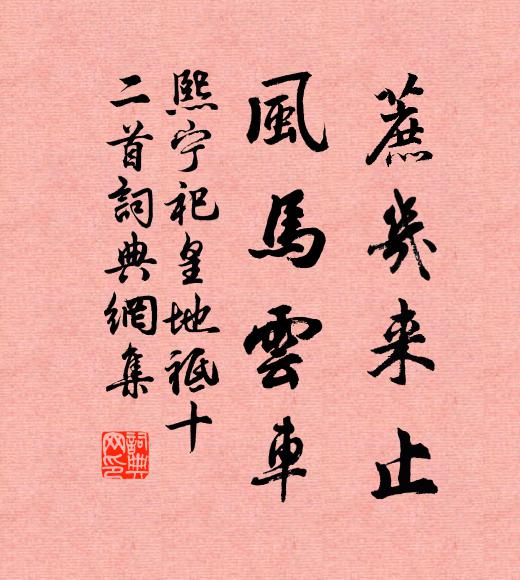 蔗幾来止
風馬雲車
熙宁祀皇地祗十
二首詞典網集
詞典网印